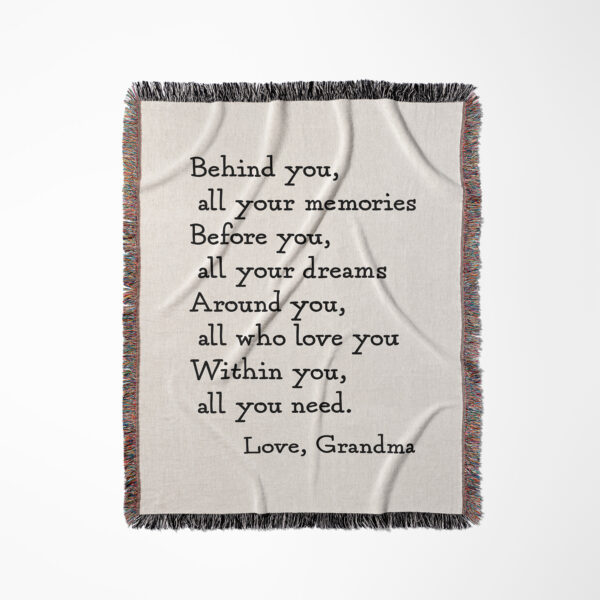 Behind you,
all your memories
Before you,
all your dreams
Around you,
all who love you
Within you,
all you need.
Love, Grandma